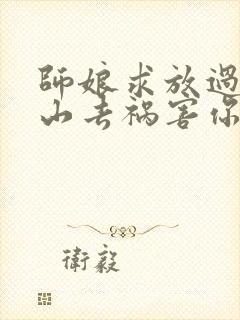 師娘求放過
山去禍害你
衛毅